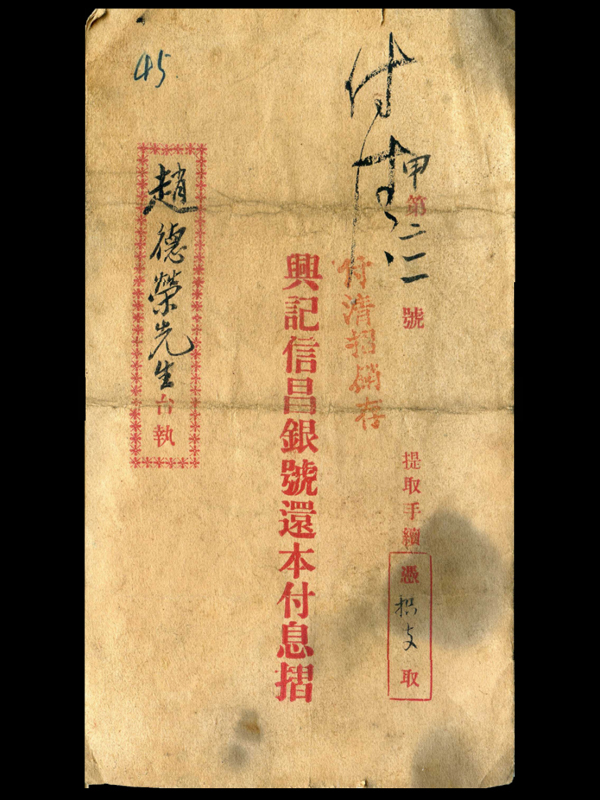 甲第二二號
提取手續憑摺支取
付清
付清摺銷存
興記信昌銀號還本付息摺
趙德榮先生台執
45